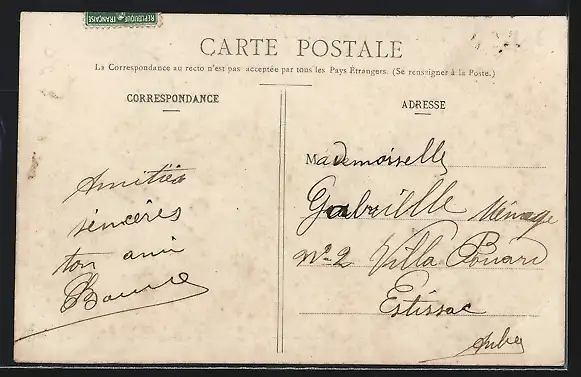 REPUBLIQUE FRANÇAISE
CARTE POSTALE
La Correspondance au recto n'est pas acceptée par tous les Pays Étrangers. (Se renseigner à la Poste.)
CORRESPONDANCE
Amitiés
sincères
ton ami
ADRESSE
Mademoiselle
Gabrielle Ménage
N° 2 Villa
Estissac
Aube